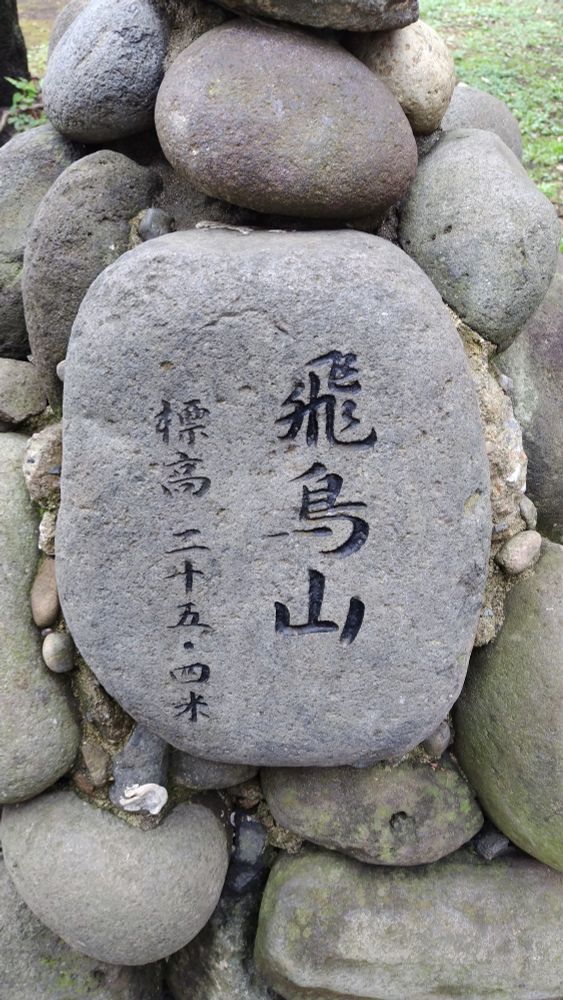 飛鳥山
標高 二十五・四米